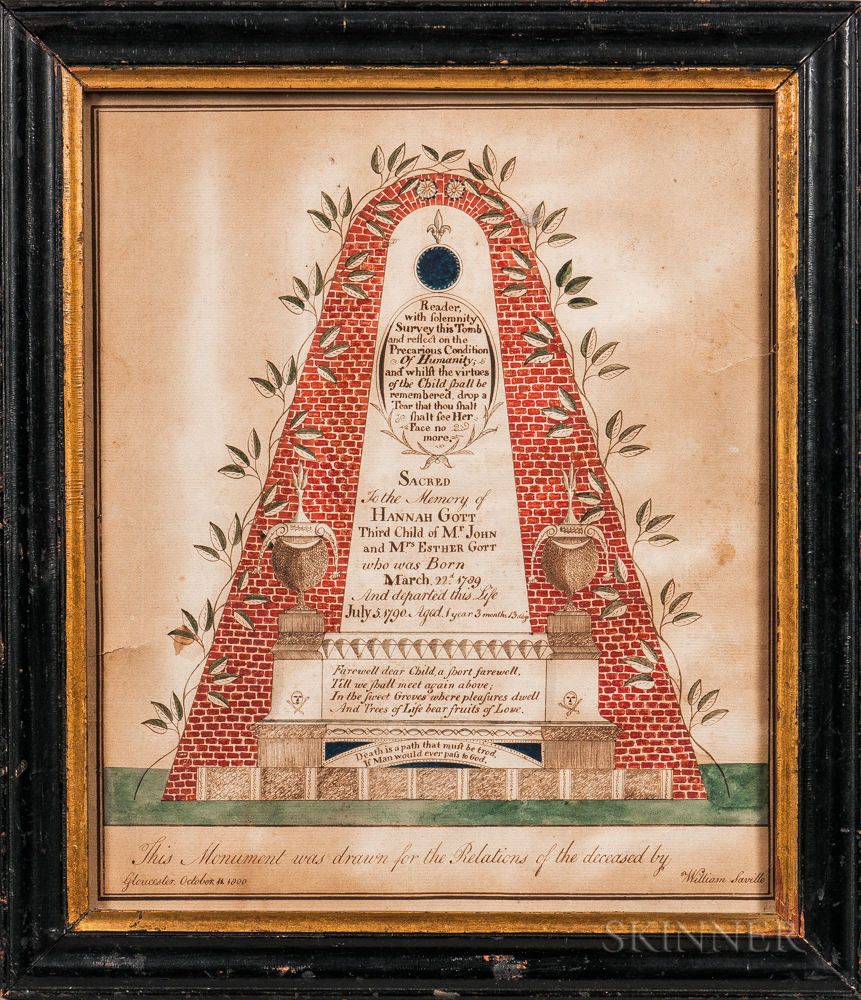 Reader,
with ſolemnity
Survey this Tomb
and reflect on the
Precarious Condition
Of Humanity;
and whilſt the virtues
of the Child ſhall be
remembered, drop a
Tear that thou ſhalt
ſhalt ſee Her
Face no
more.
SACRED
To the Memory of
HANNAH GOTT
Third Child of Mr JOHN
and Mrs ESTHER GOTT
who was Born
March, 22d 1789
And departed this Life
July 5, 1790. Aged, 1 year 3 months 13 day
Farewell dear Child, a ſhort farewell,
Till we ſhall meet again above;
In the ſweet Groves where pleaſures dwell
And Trees of Life bear fruits of Love.
Death is a path that muſt be trod,
If Man would ever paſs to God.
This Monument was drawn for the Relations of the deceased by
Gloucester, October 11. 1800 William Saville
SKINNER